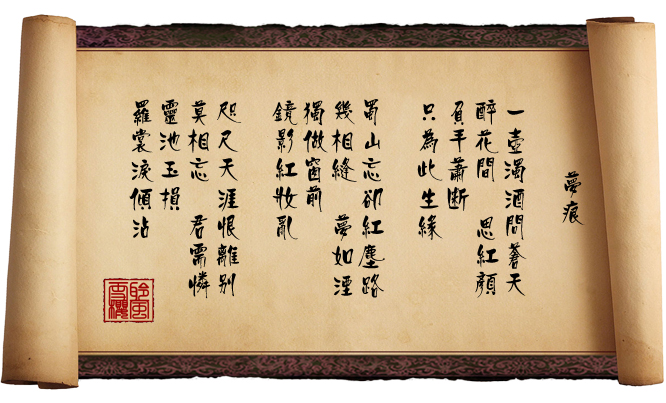 夢痕
一壺濁酒問蒼天
醉花間 思紅顏
負手蕭断
只為此生緣
蜀山忘卻紅塵路
幾相縫 夢如湮
獨做窗前
鏡影紅妝亂
咫尺天涯恨離別
莫相忘 君需憐
靈池玉損
羅裳淚傾沾